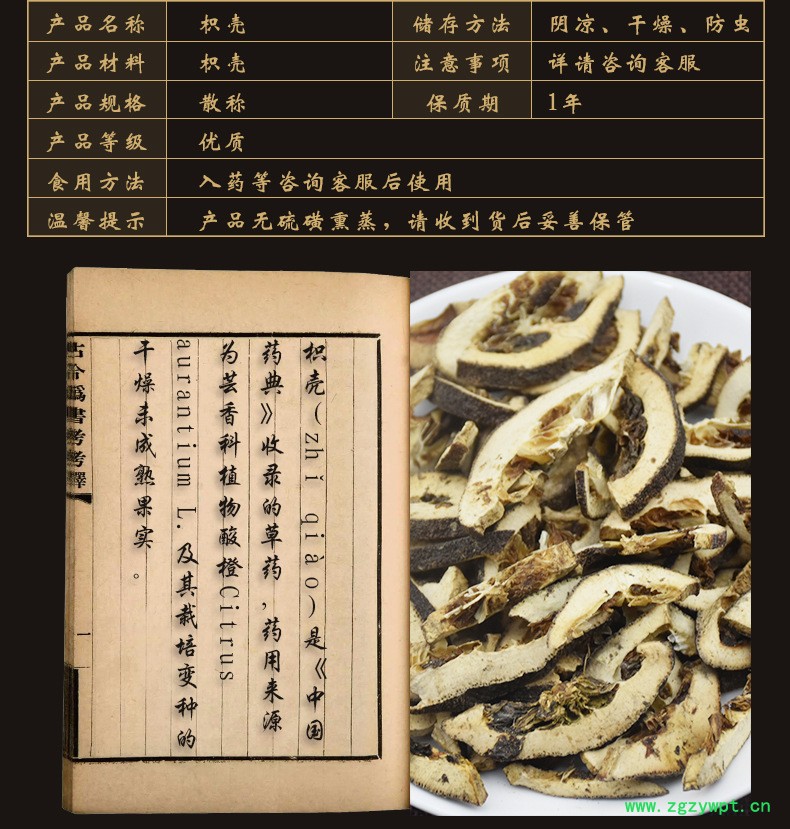 产品名称 枳壳 储存方法 阴凉、干燥、防虫
产品材料 枳壳 注意事项 详请咨询客服
产品规格 散称 保质期 1年
产品等级 优质
食用方法 入药等咨询客服后使用
温馨提示 产品无硫磺熏蒸，请收到货后妥善保管
枳壳(zhǐ qiào)是《中国
药典》收录的草药,药用来源
为芸香科植物酸橙Citrus
aurantium L.及其栽培变种的
干燥未成熟果实。
古今爲書考考釋
一
www.zgzywpt.cn